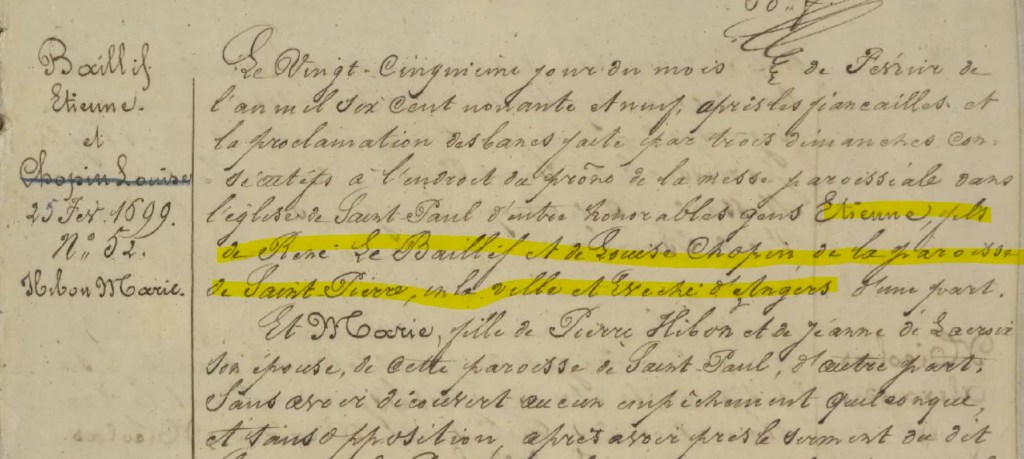 Baillif
Etienne.
et
Chopin Louise
25 Fev. 1699.
N° 52.
Hibon Marie.
Le Vingt-Cinquième jour du mois de Février de
l'an mil six cent nonante et neuf, après les fiancailles et
la proclamation des bans faite par trois dimanches con-
sécutifs à l'endroit du prône de la messe paroissiale dans
l'église de Saint-Paul d'entre honorables gens Etienne, fils
de René Le Baillif et de Louise Chopin, de la paroisse
de Saint-Pierre, en la ville et Evêché d'Angers d'une part.
Et Marie, fille de Pierre Hibon et de Jeanne de Lacroix
son épouse, de cette paroisse de Saint-Paul, d'autre part.
Sans avoir découvert aucun empêchement quelconque,
et sans opposition, après avoir pris le serment du dit